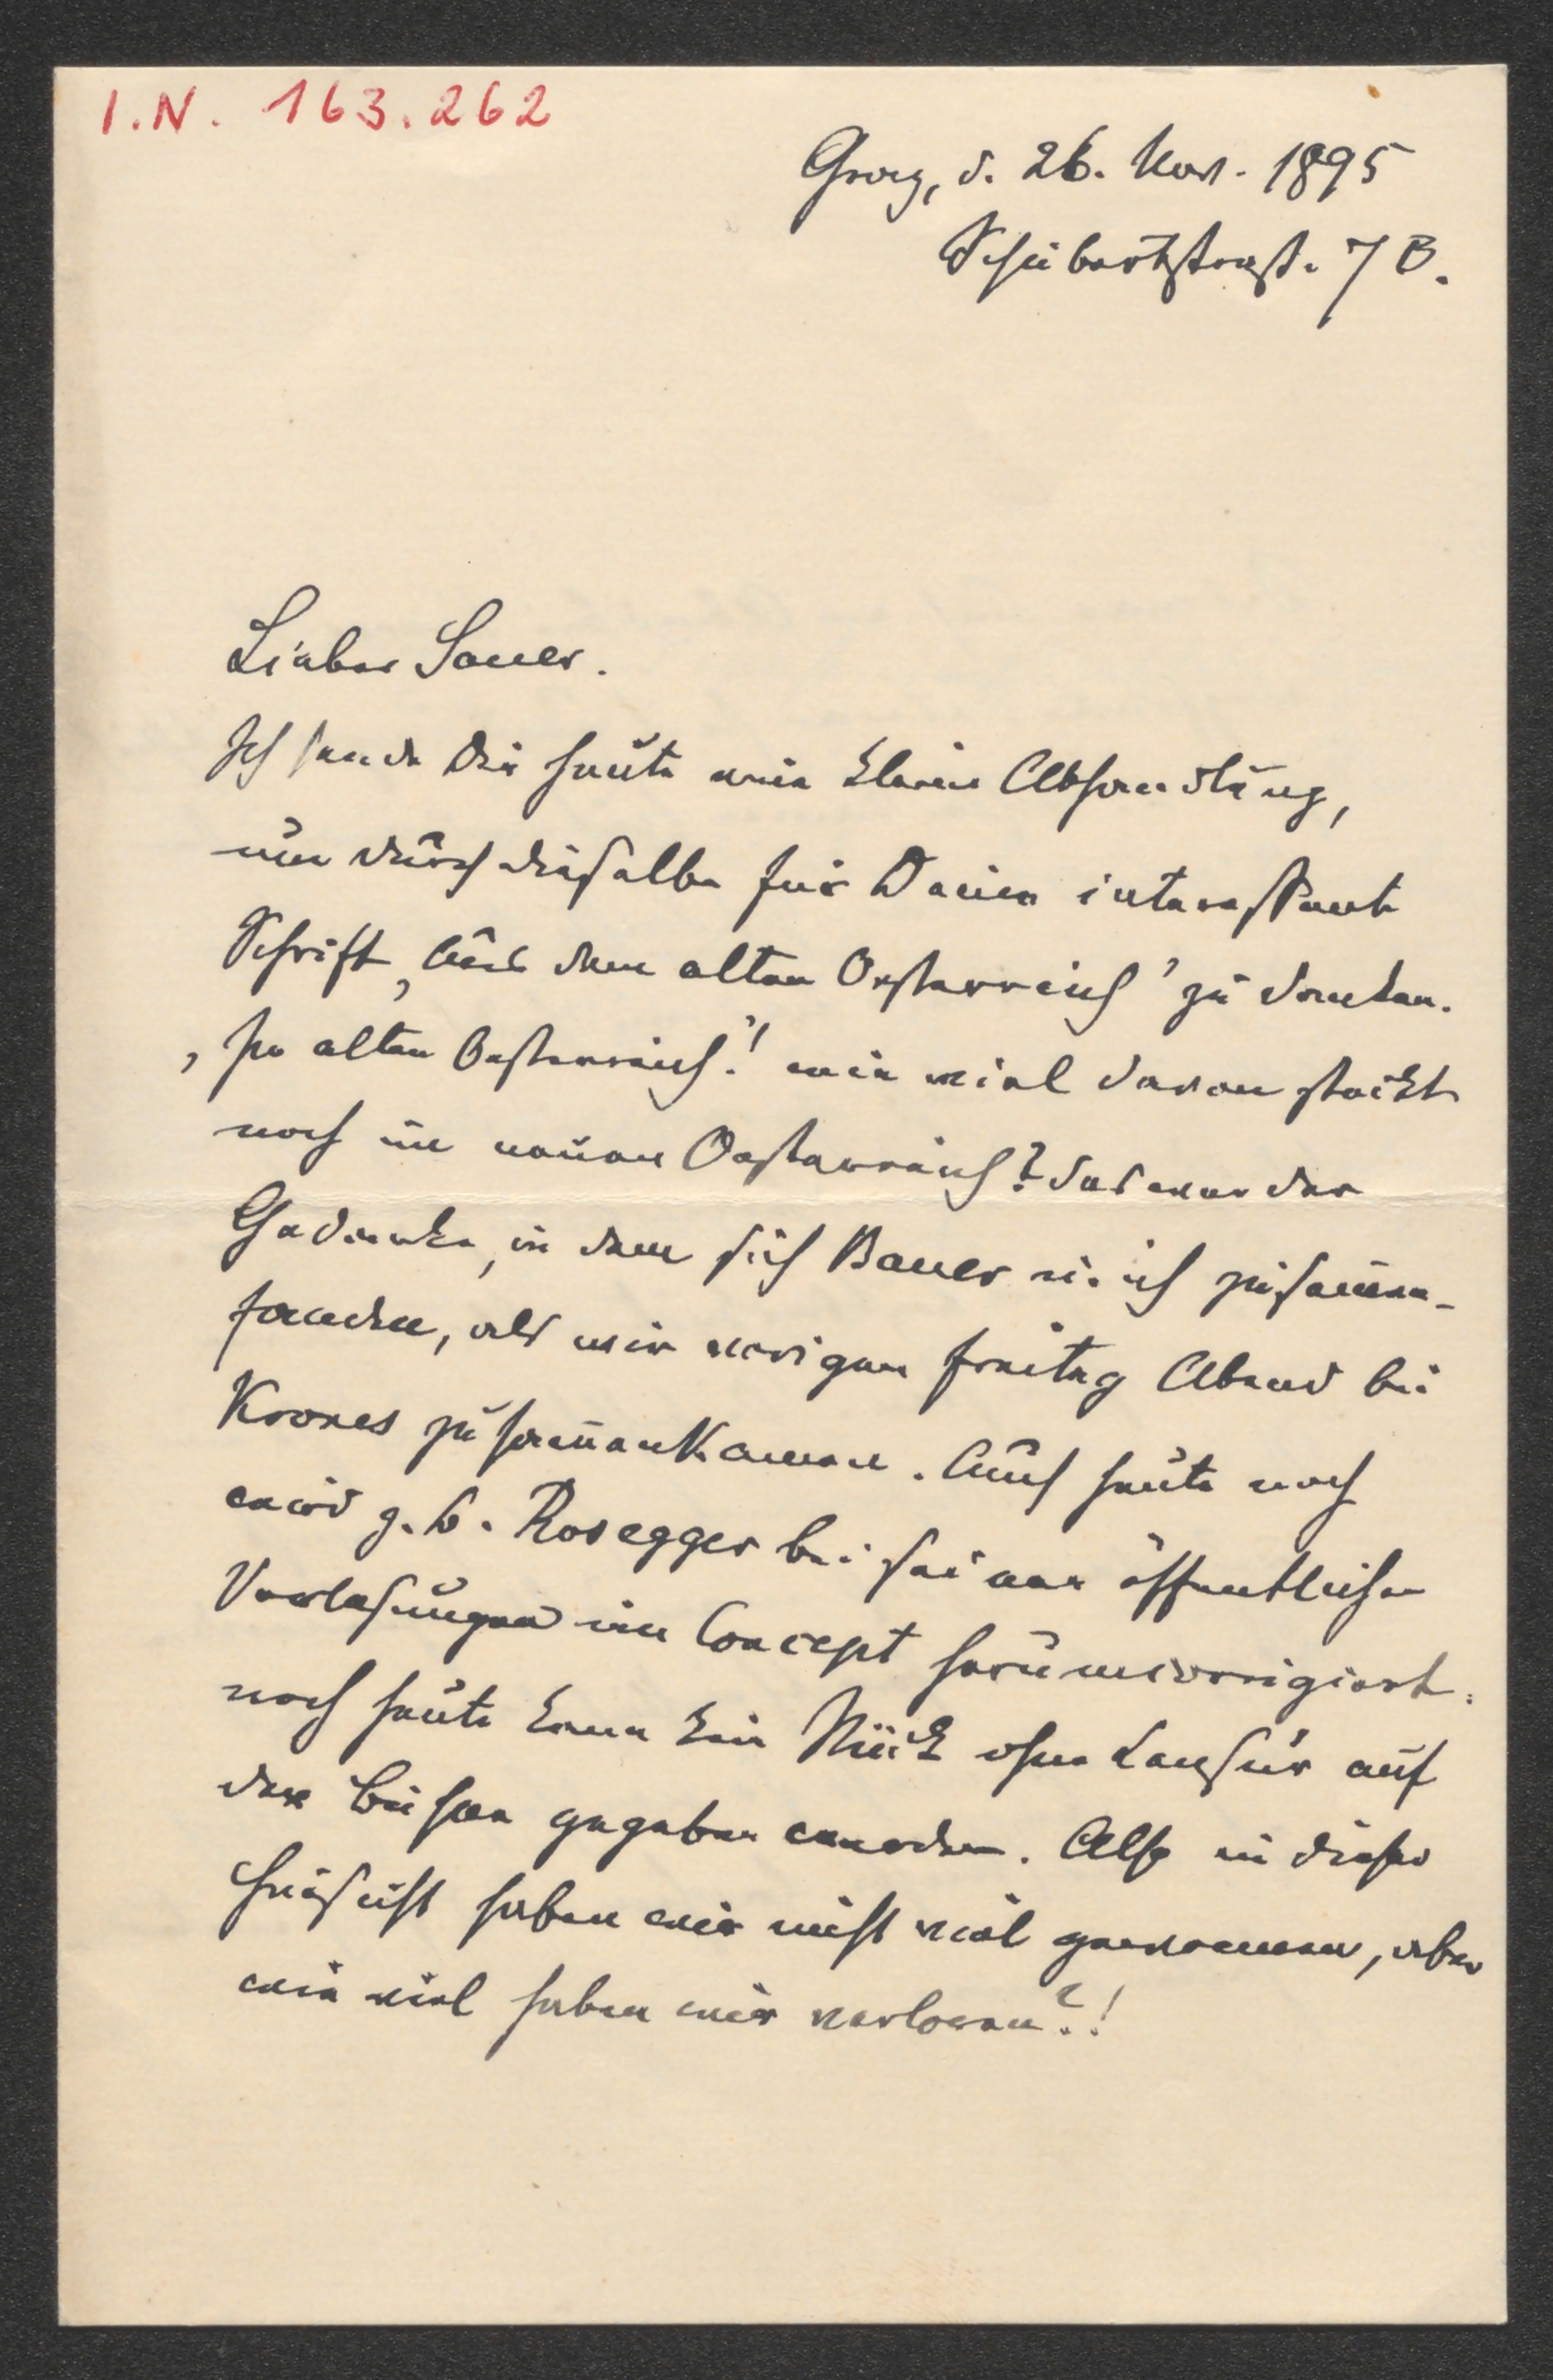 I.N. 163.262
Graz, d. 26. Nov. 1895
Schubertstraße. 7 B.
Lieber Sauer.
Ich sende Dir heute eine kleine Abhandlung,
um durch dieselbe für Deine interessante
Schrift ‚Aus dem alten Oesterreich' zu danken.
‚Im alten Oesterreich!' wie viel davon steckt
noch im neuen Oesterreich? das war der
Gedanke, in dem sich Bauer u. ich zusammen-
fanden, als wir vorigen Freitag Abend bei
Krones zusammenkamen. Auch heute noch
wird z. B. Rosegger bei seinen öffentlichen
Vorlesungen im Concept herumcorrigiert.
noch heute kann kein Stück ohne Censur auf
der Bühne gegeben werden. Also in dieser
Hinsicht haben wir nicht viel gewonnen, aber
wie viel haben wir verloren?!